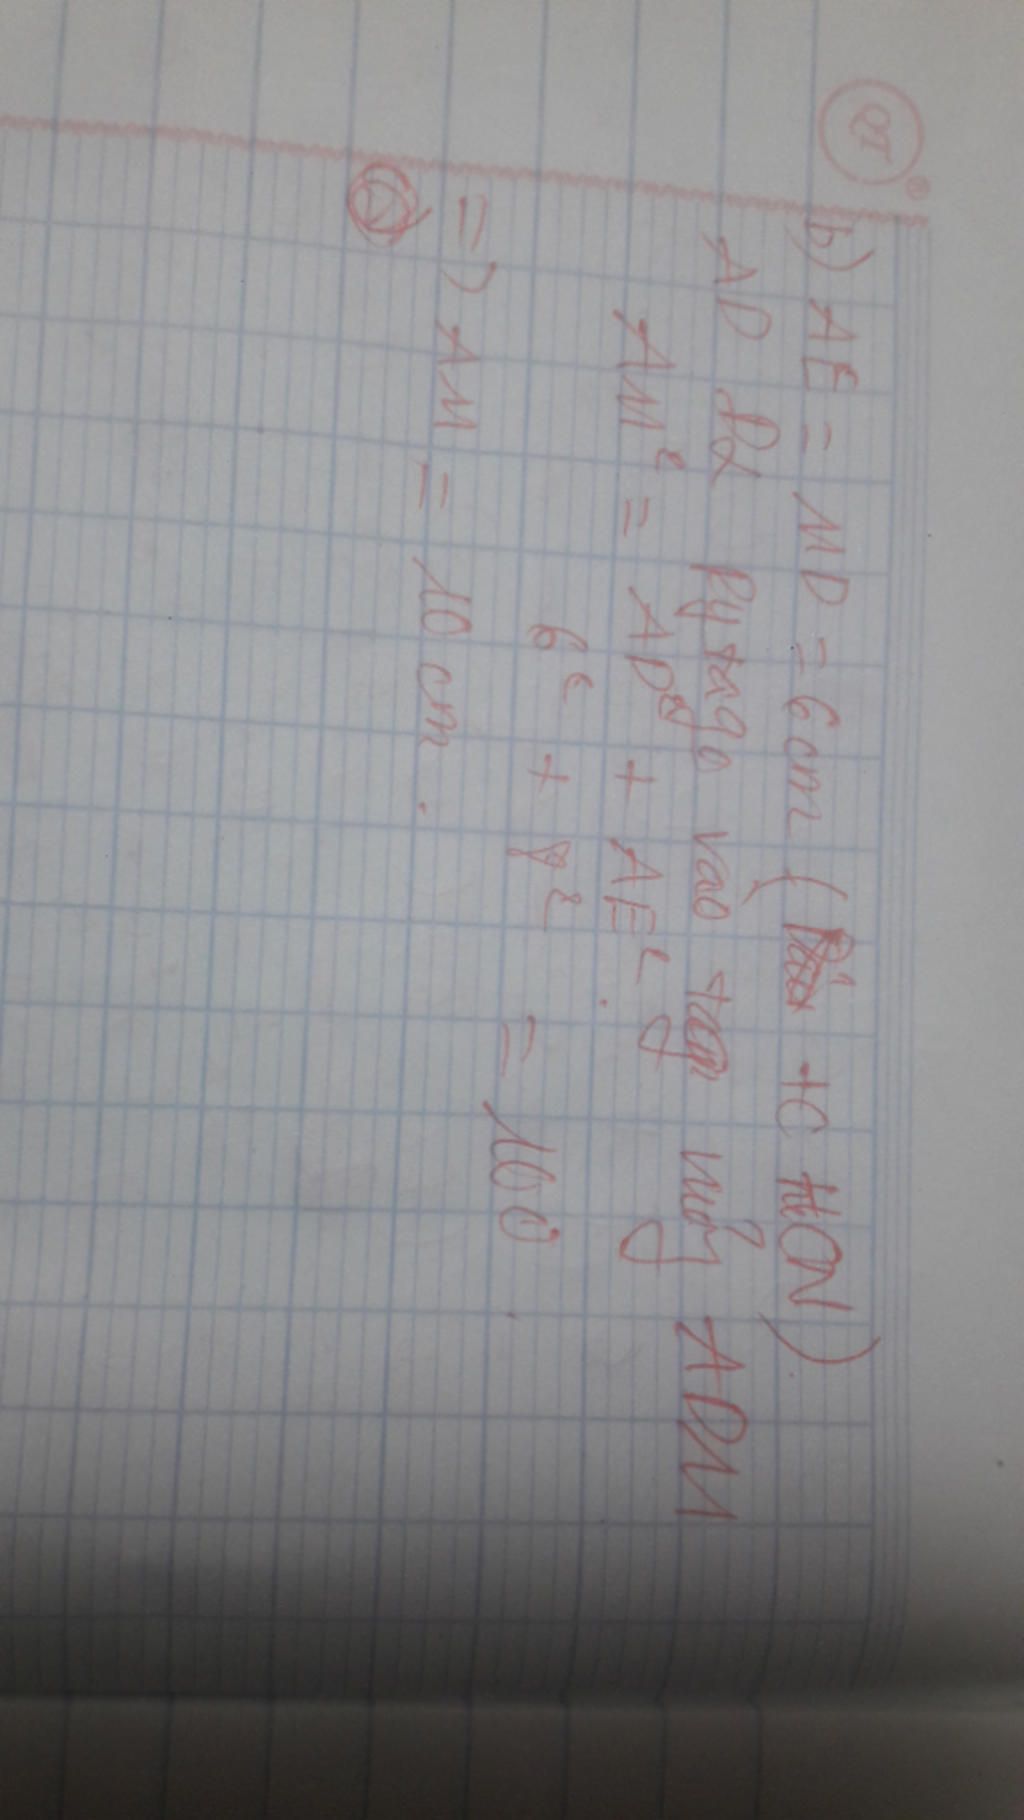 b) AE = MD = 6cm ( +C HCN).
AD ĐL Pytago vào tam giác vuông ADM
AM² = AD² + AE².
6² + 8² = 100.
=) AM = 10 cm.